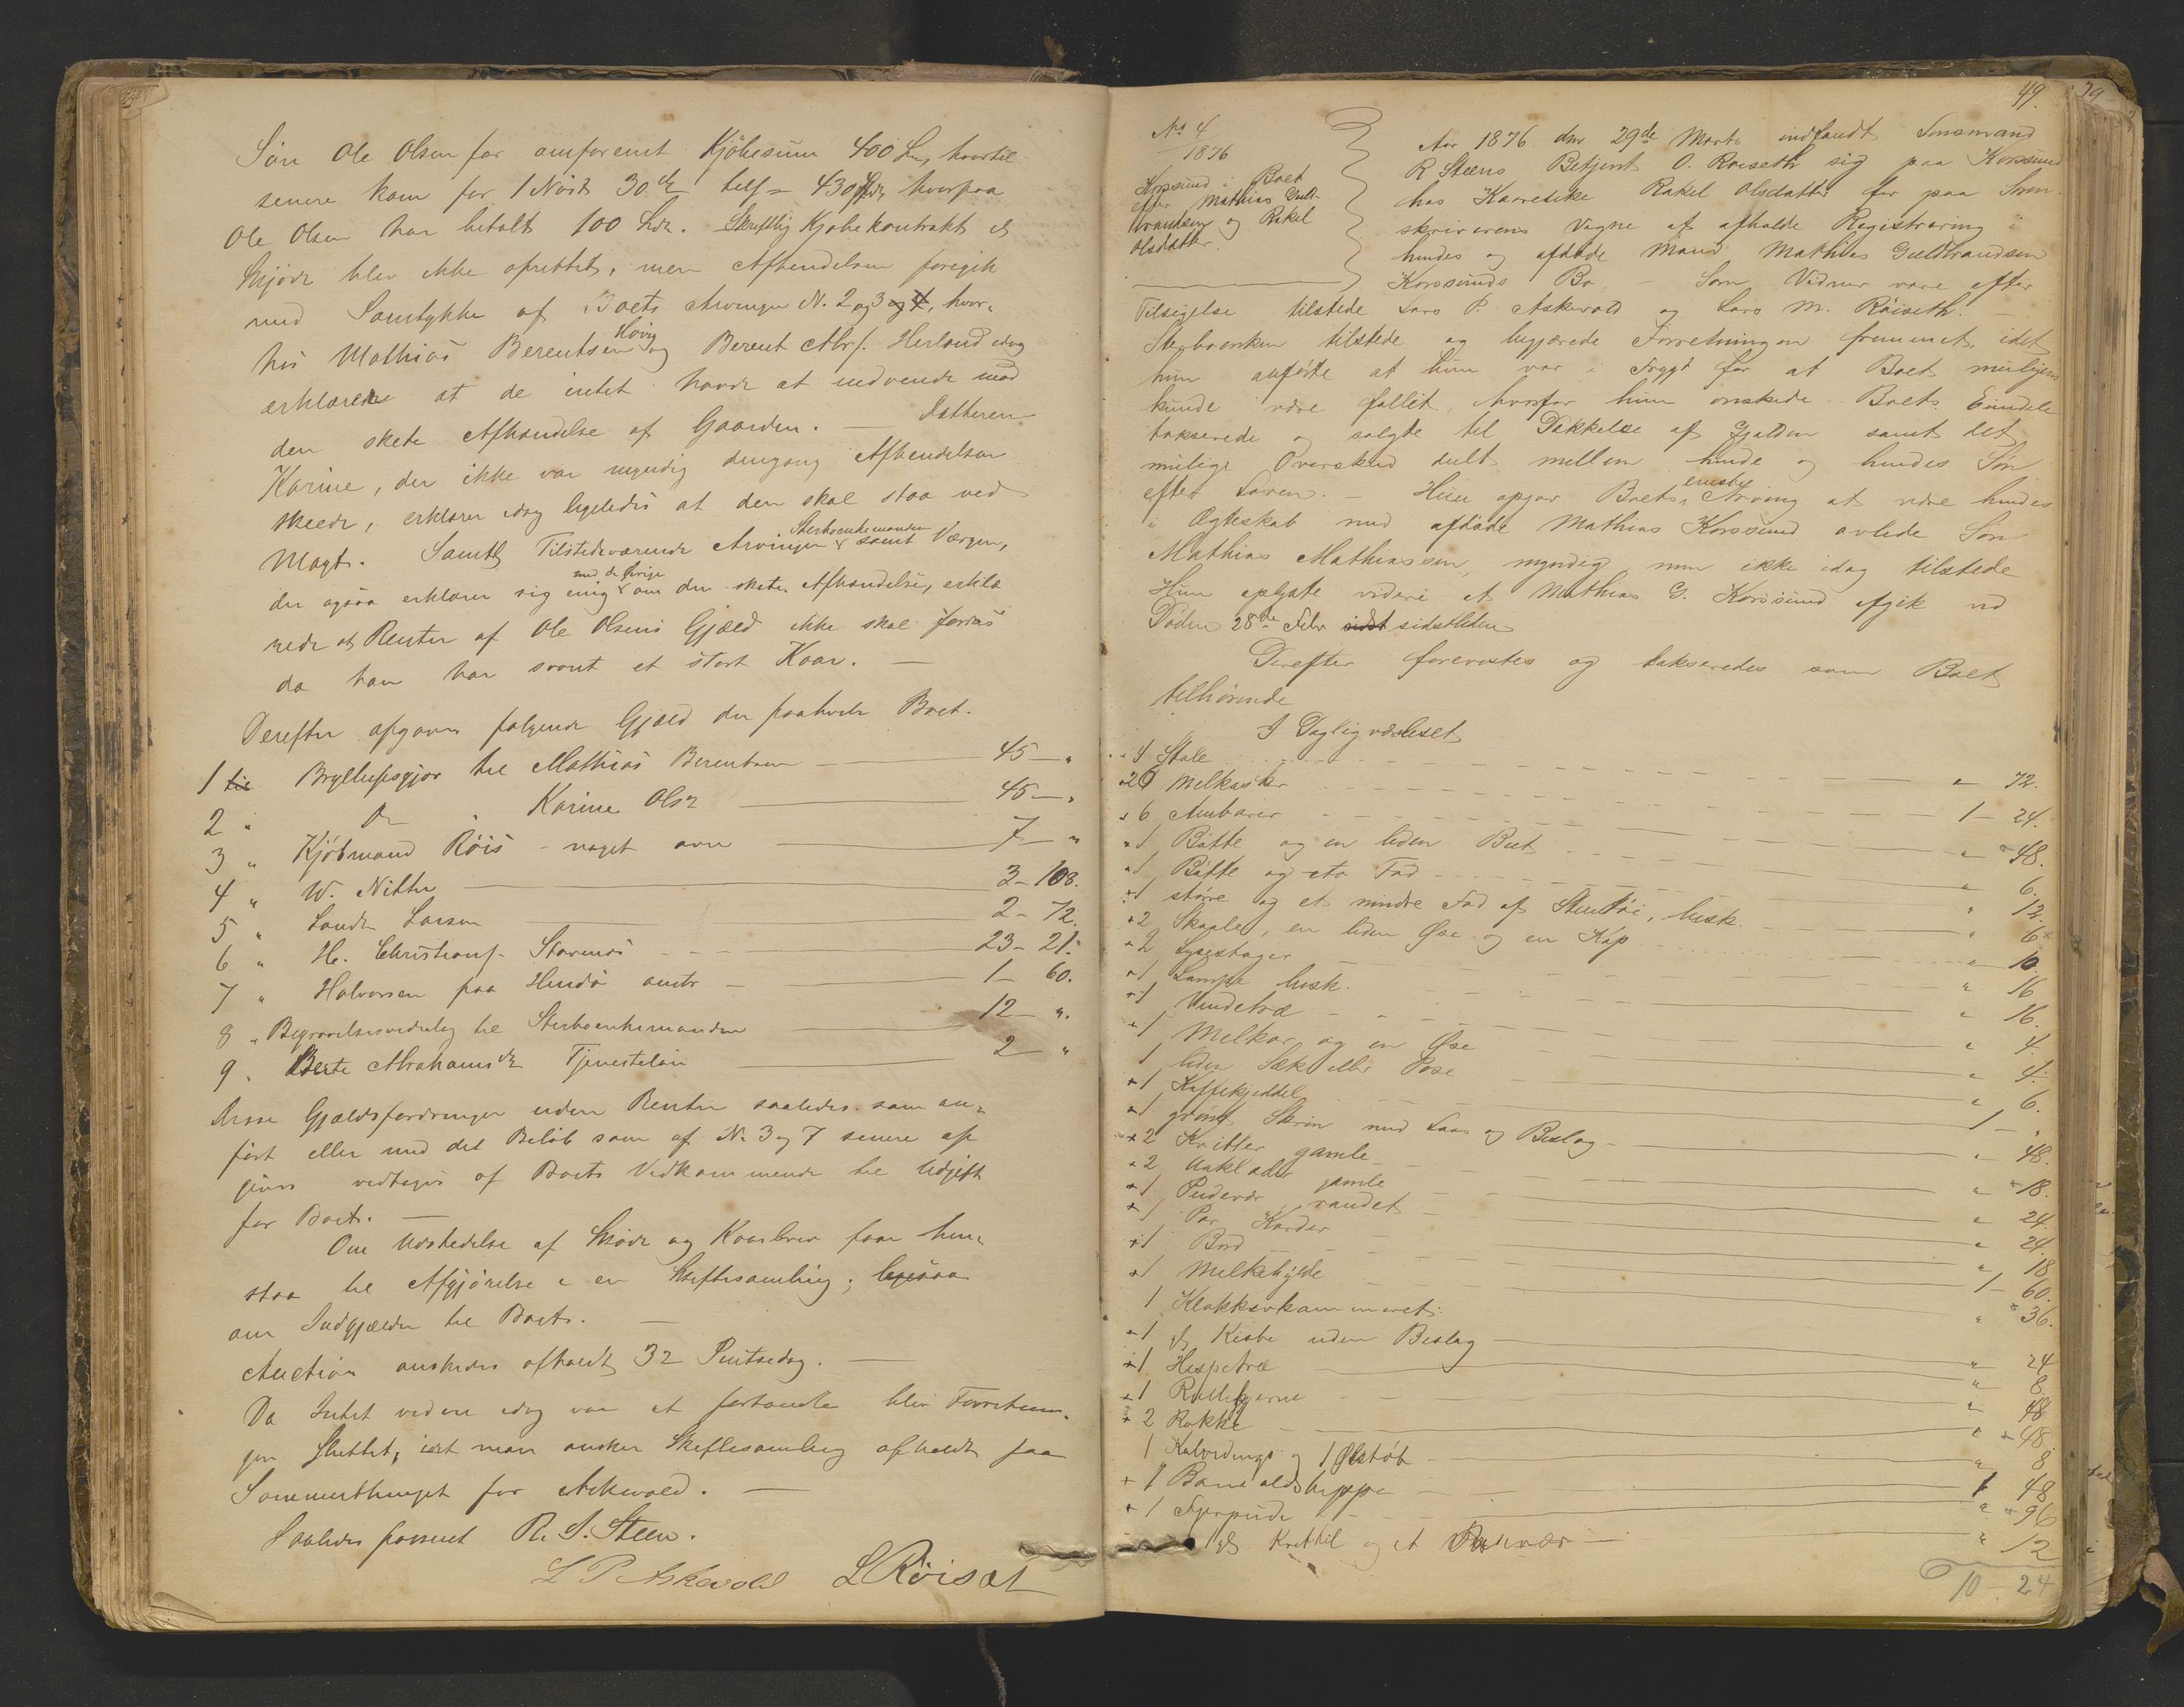 Søn Ole Olsen for omforenet Kjøbesum 400 Spd, hvortil
senere kom for 1 Nøst 30 d. tils = 430 Spd, hvorpaa
Ole Olsen har betalt 100 Spd. Skriftlig Kjøbekontrakt el
Skjøde blev ikke oprettet, men Afhendelsen foregik
med Samtykke af Boets Arvinger N. 2 og 3 og 4, hvor-
hos Mathias Berentsen Høvig og Berent Abr. Herland idag
erklærede at de intet havde at indvende mod
den skete Afhændelse af Gaarden. — Datteren
Karine, der ikke var myndig dengang Afhendelsen
skede, erklærer idag ligeledes at den skal staa ved
Magt. Samtl Tilstedeværende Arvinger Sterboenkemanden samt Værgen,
der ogsaa erklærer sig enig med de øvrige om den skete Afhændelse, erklæ
rede at Renter af Ole Olsens Gjæld ikke skal
da han har svaret et stort Kaar. —
Derefter opgaves følgende Gjæld der paahvile Boet.
1 til Bryllupsgjør til Mathias Berentsen — 45 — "
2 " Do " Karine Olsd — 45 — "
3 " Kjøbmand Röis - noget over — 7 — "
4 " W. Nitter — 3 - 108.
5 " Larsen — 2 - 72.
6 " H. Christians. — 23 - 21.
7 " Halvorsen paa — 1 - 60.
8 " Begravelsesvederlag til Sterboenkemanden — 12 - ".
9 " Berte Abrahamsd. Tjenesteløn — 2 "
Disse Gjældsfordringer uden Renter saaledes som an-
ført eller med det Beløb som af N. 3 og 7 senere op
gives vedtages af Boets Vedkommende til Udgift
for Boet. —
Om Udstedelse af Skjøde og Kaarbrev faar hen-
staa til Afgjørelse i en Skiftesamling; ligesaa
om Indgjælden til Boet. —
Auction ønskedes afholdt 3d Pintsedag. —
Da Intet videre idag var at forhandle blev Forretnin-
gen sluttet, idet man ønsker Skiftesamling afholdt paa
Sommerthinget for Askevold. —
Saaledes passeret R. S. Steen.
L P Askevold L Röisæt
49.
No 4
1876
Korssund i Boet
efter Mathias Guld-
brandsen og Rakel
Olsdatter.
Aar 1876 den 29de Marts indfandt Lensmand
R Steens Betjent O. Röiseth sig paa Korssund
hos Kaarenke Rakel Olsdatter for paa Soren-
skriverens Vegne at afholde Registrering i
hendes og afdøde Mand Mathias Guldbrandsen
Korssunds Bo — Som Vidner vare efter
Tilsigelse tilstede Lars P. Askevold og Lars M. Röiseth. —
Sterboenken tilstede og begjærede Forretningen fremmet, idet
hun anførte at hun var i Frygt for at Boet muligens
kunde være fallit, hvorfor hun ønskede Boets Eiendele
takserede og solgte til Dækkelse af Gjælden samt det
mulige Overskud delt mellem hende og hendes Søn
efter Loven. — Hun opgav Boets eneste Arving at være hendes
i Ægteskab med afdøde Mathias Korssund avlede Søn
Mathias Mathiassen, myndig, men ikke idag tilstede
Hun oplyste videre at Mathias G. Korssund afgik ved
Døden 28de Febr sidst sidstleden
Derefter forevistes og takseredes som Boet
tilhørende
I Dagligværelset
4 Stole — " 72.
20 Melkasker — 1 - 24.
6 Ambarer — " 48.
1 Bøtte og en liden But — " 6.
1 Bøtte og eto Fad — " 12.
1 større og et mindre Fad af Stentöi, brusk. — " 6
2 Skaale, en liden Øse og en Kop — " 10.
2 Lysestager — " 16
1 Lampe brusk. — " 16.
1 Vindetræ — " 4.
1 Melkar og en Øse — " 4.
1 liden Sæk eller Pose — " 6.
1 Kaffekjeddel — 1 - "
1 grønt Skrin med Laas og Beslag — " 48.
2 Kvitler gamle — " 18.
2 Aaklæder gamle — " 24.
1 Pudevær randet — " 24.
1 Par Karder — " 18
1 Bord — 1 - 60.
1 Melkehylde — " 36.
1 Klokkerkammeret:
1 dl Kiste uden Beslag — " 24
1 Hespetræ — " 8.
1 Rullekjerne — " 48
2 Rokke — " 48.
1 og 1 Ølstøb — " 8
1 — 1 48
1 Fjerpude — " 96
1 gl Kvittil og et Pudevær — " 12
10 - 24